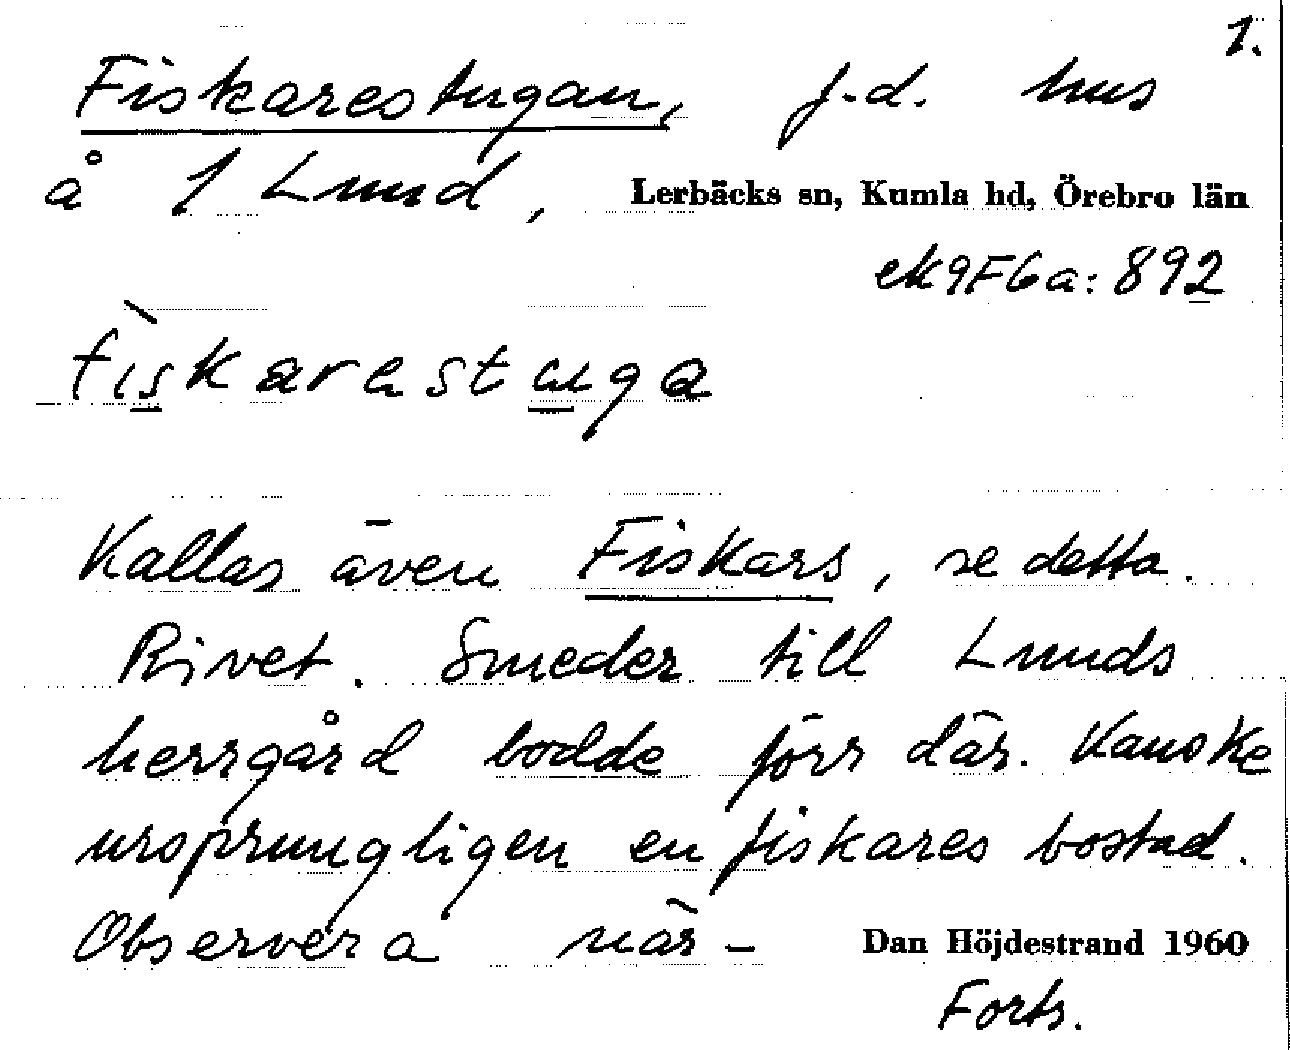 1.
Fiskarestugan, f.d. hus
å 1 Lund, Lerbäcks sn, Kumla hd, Örebro län
ek9F6a: 892
fìskarastuga
Kallas även Fiskars, se detta.
Rivet. Smeder till Lunds
herrgård bodde förr där. Kanske
ursprungligen en fiskares bostad.
Observera när-
Dan Höjdestrand 1960
Forts.